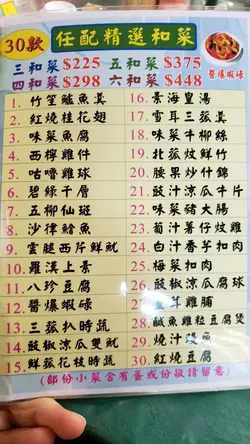 30款 任配精選和菜
三和菜 $225 五和菜 $375
四和菜 $298 六和菜 $448
醬爆蝦碌
1. 竹笙鱸魚羹
2. 紅燒桂花翅
3. 味菜魚腐
4. 西檸雞件
5. 咕嚕雞球
6. 碧綠千層
7. 五柳仙斑
8. 沙律鱠魚
9. 雲腿西芹鮮魷
10. 羅漢上素
11. 八珍豆腐
12. 醬爆蝦碌
13. 三菇扒時蔬
14. 豉椒涼瓜雙魷
15. 鮮菰花枝時蔬
16. 素海皇湯
17. 雪耳三菰羹
18. 味菜牛柳絲
19. 北菰炆鮮竹
20. 腰果炒什錦
21. 豉汁涼瓜牛片
22. 味菜豬大腸
23. 葡汁薯仔炆雞
24. 白汁香芋扣肉
25. 梅菜扣肉
26. 豉椒涼瓜腐球
27. 雲耳雞脯
28. 鹹魚雞粒豆腐煲
29. 燒汁鱔魚
30. 紅燒豆腐
(部份小菜含有蛋成份敬請留意)